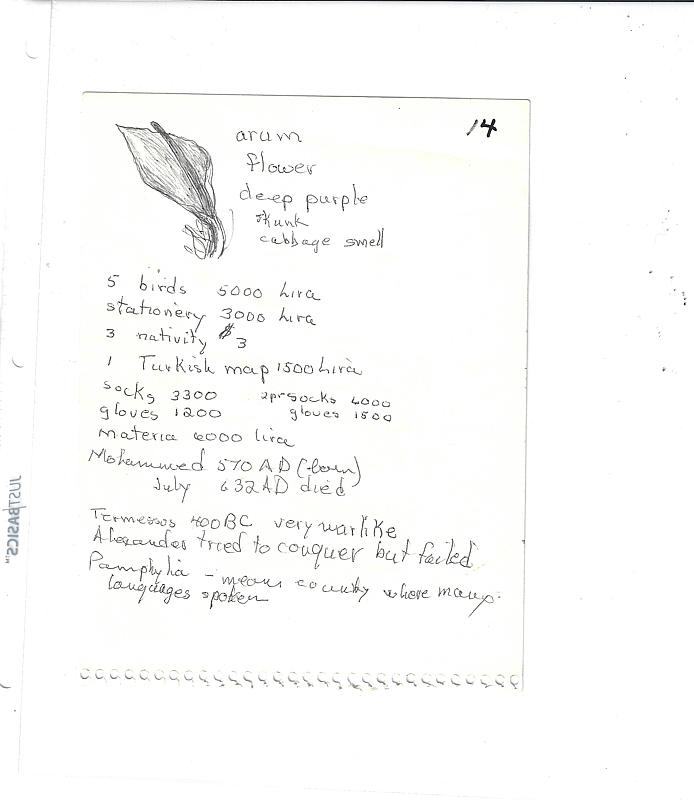 14
arum
flower
deep purple
skunk
cabbage smell
5 birds 5000 lira
stationery 3000 lira
3 nativity $3
1 Turkish map 1500 lira
socks 3300 2pr socks 4000
gloves 1200 gloves 1500
materia 6000 lira
Mohammed 570 AD (born)
July 632 AD died
Termessos 400 BC very warlike
Alexander tried to conquer but failed
Pamphylia - means country where many
languages spoken
JUSTBASICS™